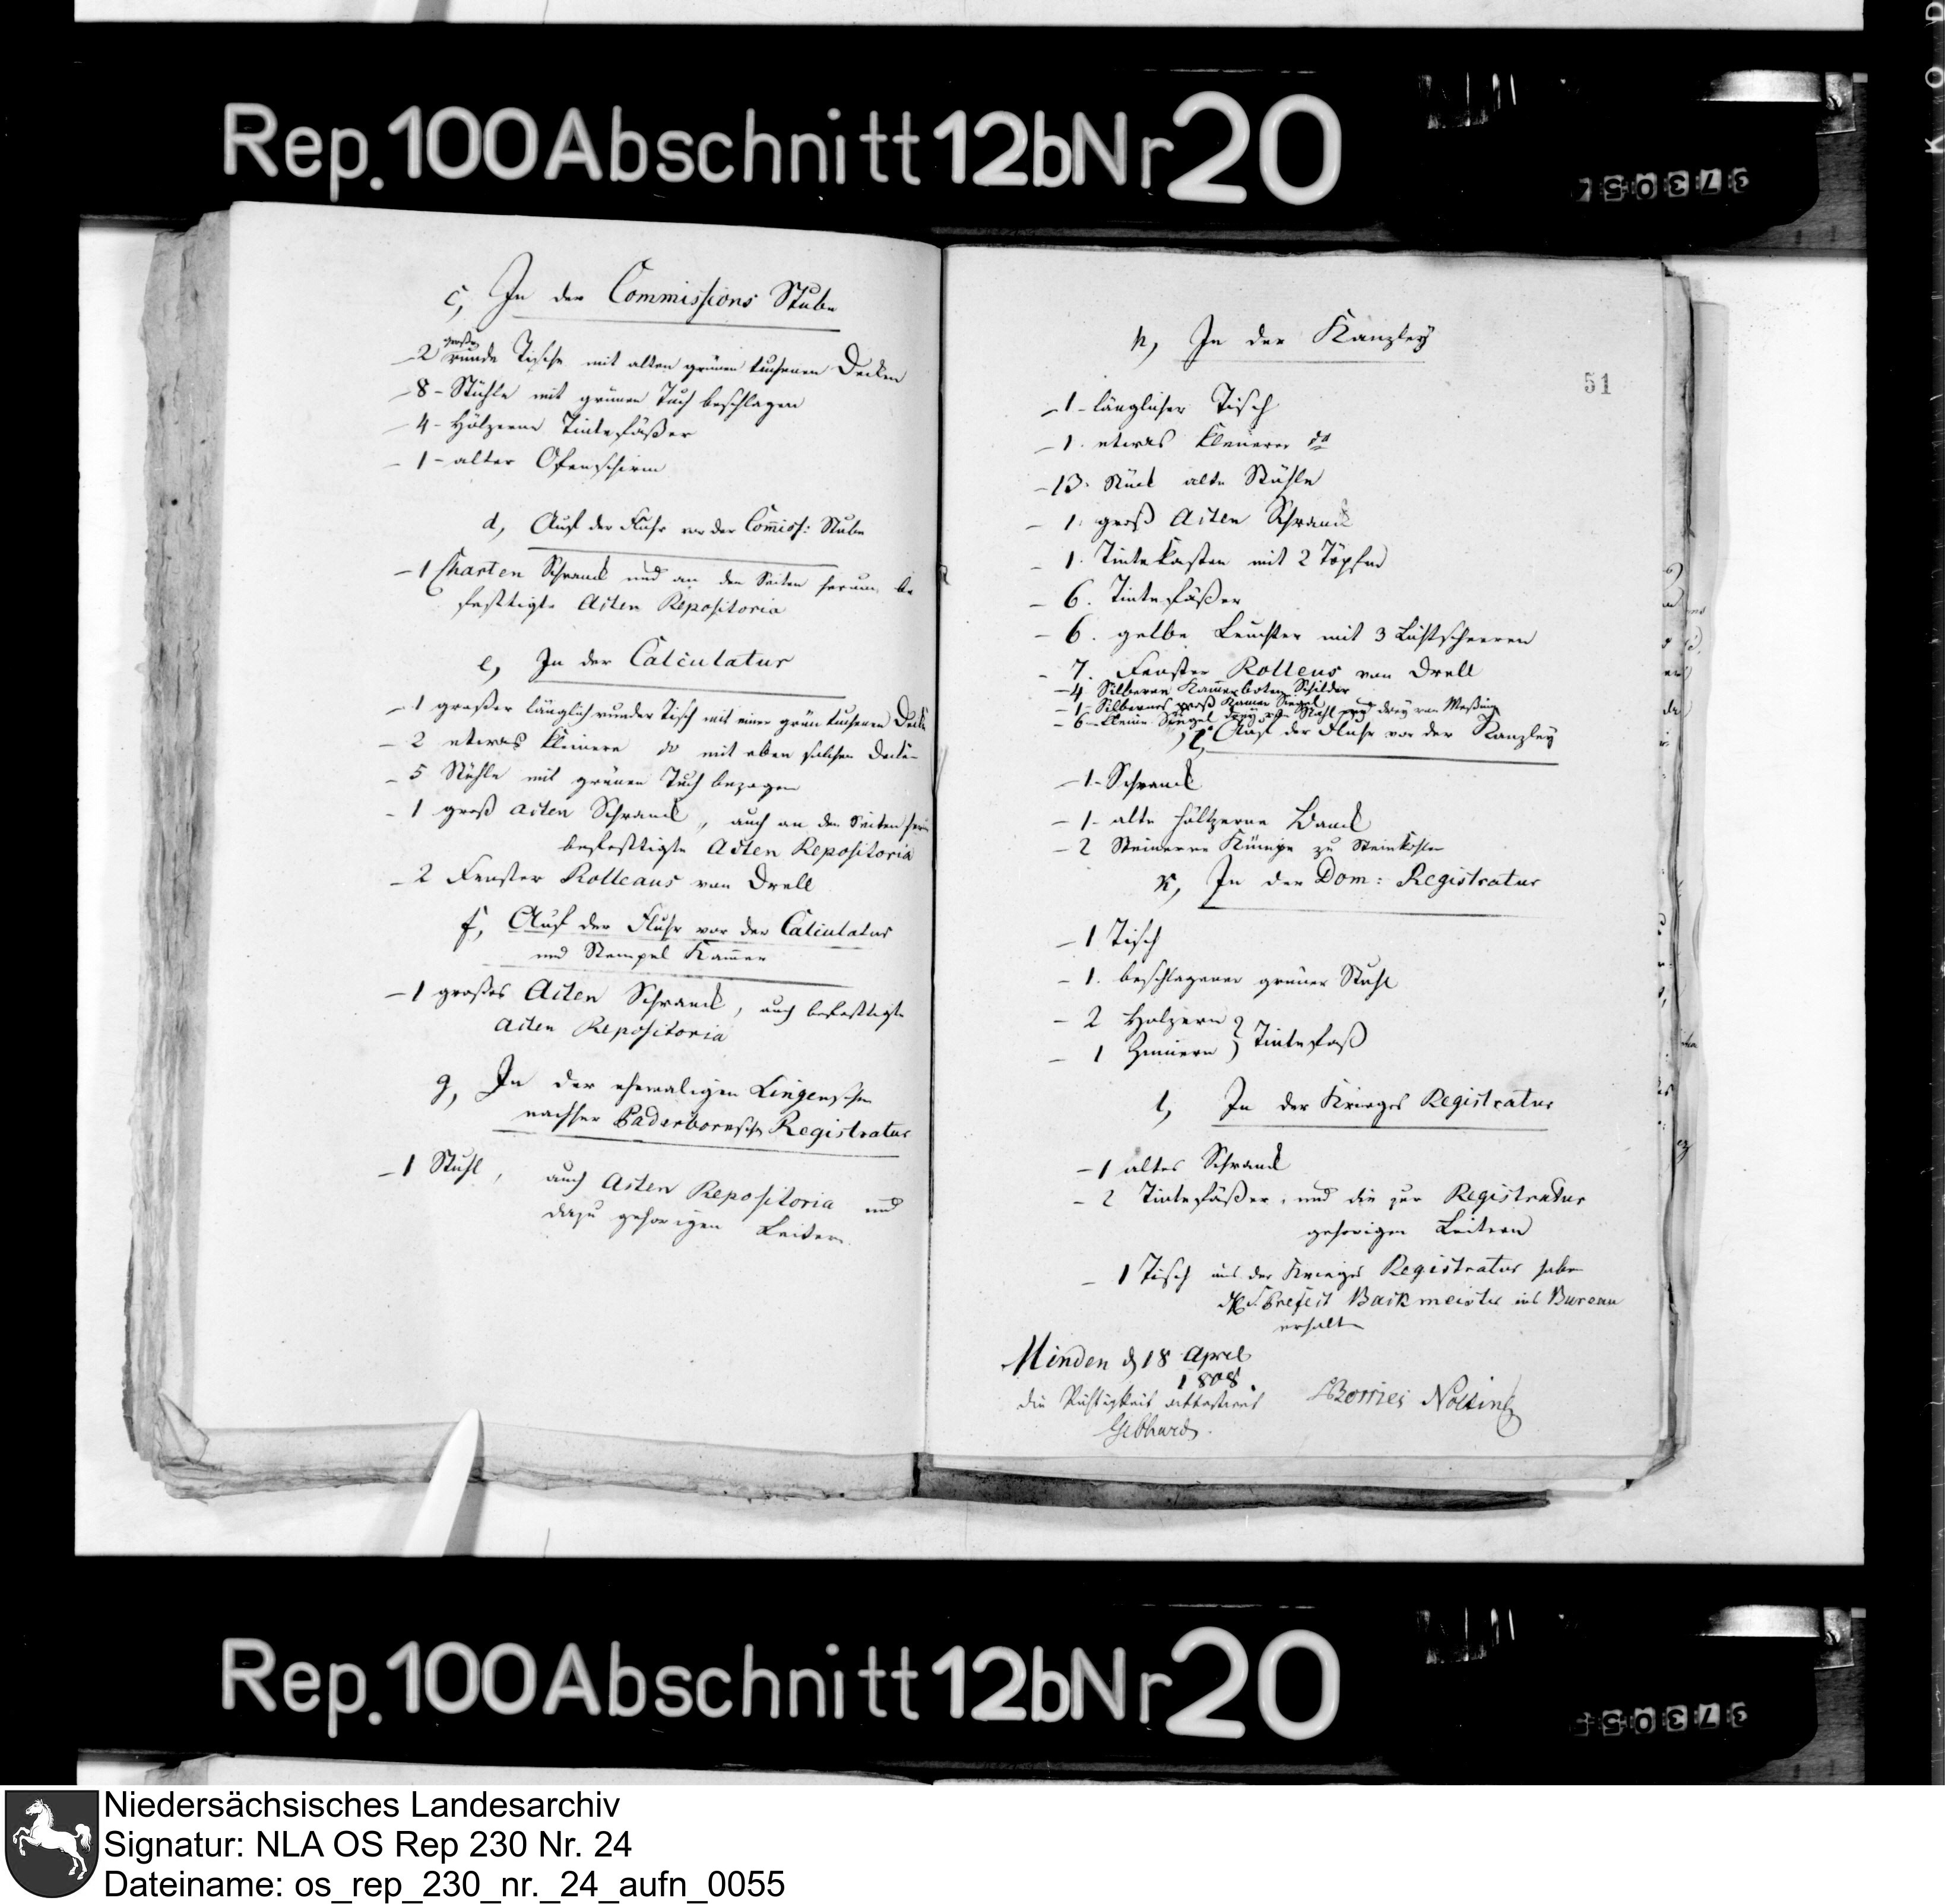 Rep. 100 Abschnitt 12b Nr 20
373052
c, In der Commissions Stube
große
– 2 runde Tische mit alten grünen tuchenen Decken
– 8 - Stühle mit grünen Tuch beschlagen
– 4 - Hölzerne Tintefäßer
– 1 - alter Ofenschirm
d, Auf der Fluhr vor der Com̅iss: Stube
– 1 Charten Schranck und an den Seiten herum be
festtigte Acten Repositoria
e, In der Calculatur
– 1 großer länglich runder Tisch mit einer grün tuchenen Decke
– 2 etwas kleinere do mit eben solchen Decke-
– 5 Stühle mit grünen Tuch bezogen
– 1 groß Acten Schranck, auch an den Seiten herum
befesttigte Acten Repositoria
– 2 Fenster Rolleaus von Drell
f, Auf der Fluhr vor der Calculatur
und Stempel Kam̅er
– 1 großes Acten Schranck, auch befesttigte
Acten Repositoria
g, In der ehemaligen Lingenschen
nachher Paderbornsche Registratur
– 1 Stuhl, auch Acten Repositoria und
dazu gehorigen Leitern
h, In der Kanzley
51
– 1 - länglicher Tisch
– 1. etwas kleinerer do
– 13. Stück alte Stühle
– 1. groß Acten Schranck
– 1. Tintekasten mit 2 Töpfen
– 6. Tintefäßer
– 6. gelbe Leuchter mit 3 Lichtscheeren
– 7. Fenster Rolleus von Drell
– 4 Silberne Kam̅erboten Schilder
– 1 - Silbernes groß Kamer Siegel
– 6 - kleine Siegel drey von Stahl drey von Meßing
i, Auf der Fluhr vor der Kanzley
– 1 - Schranck
– 1 - alte höltzerne Banck
– 2 Steinerne Kümpe zu Steinkohlen
k, In der Dom: Registratur
– 1 Tisch
– 1. beschlagener grüner Stuhl
– 2 Holzern
– 1 Zinnern } Tintefaß
l, In der Krieges Registratur
– 1 altes Schranck
– 2 Tintefäßer, und die zur Registratur
gehorigen Leitern
– 1 Tisch aus der Krieges Registratur habe
H. S. Prefect Backmeister ins Bureau
erhalten
Minden d 18 April
1808.
die Richtigkeit attestirt
Gebhard.
vBorries Nolting
Rep. 100 Abschnitt 12b Nr 20
373055
Niedersächsisches Landesarchiv
Signatur: NLA OS Rep 230 Nr. 24
Dateiname: os_rep_230_nr._24_aufn_0055